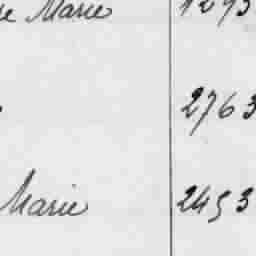 Marie
2763
Marie 2453